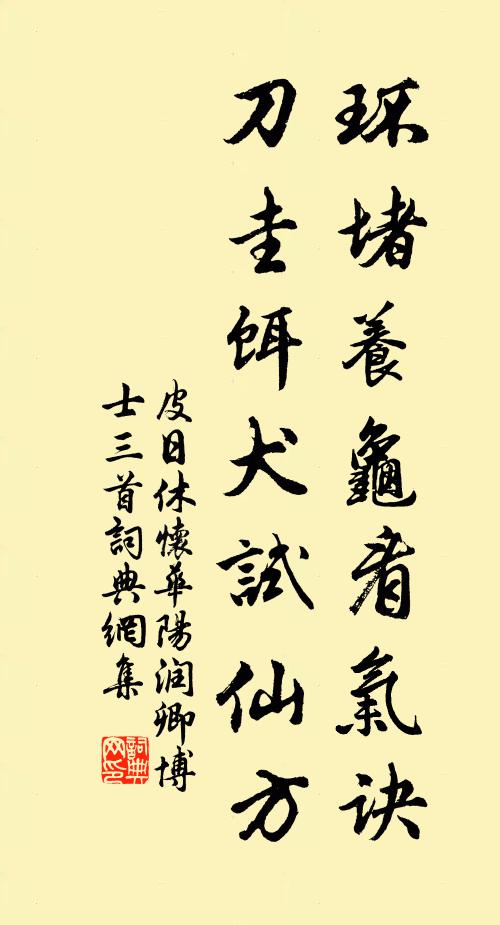 环堵養龜看氣诀
刀圭餌犬試仙方
皮日休懷華陽润卿博
士三首詞典網集
詞典
网印